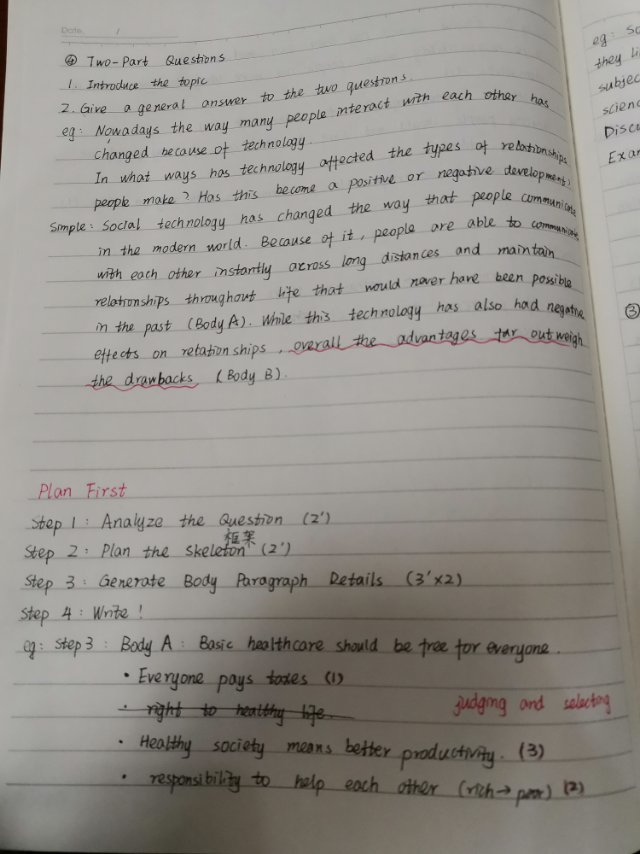 Date. /
④ Two-Part Questions
1. Introduce the topic
2. Give a general answer to the two questions.
eg: Nowadays the way many people interact with each other has
changed because of technology.
In what ways has technology affected the types of relationships
people make? Has this become a positive or negative development?
Simple: Social technology has changed the way that people communicate
in the modern world. Because of it, people are able to communicate
with each other instantly across long distances and maintain
relationships throughout life that would never have been possible
in the past (Body A). While this technology has also had negative
effects on relationships, overall the advantages far outweigh
the drawbacks (Body B).
Plan First
Step 1: Analyze the Question (2')
框架
Step 2: Plan the skeleton (2')
Step 3: Generate Body Paragraph Details (3'×2)
Step 4: Write!
eg: Step 3: Body A: Basic healthcare should be free for everyone.
· Everyone pays taxes (1)
· right to healthy life. judging and selecting
· Healthy society means better productivity. (3)
· responsibility to help each other (rich→poor) (2)
eg: So
they li
subjec
scien
Discu
Exa
③